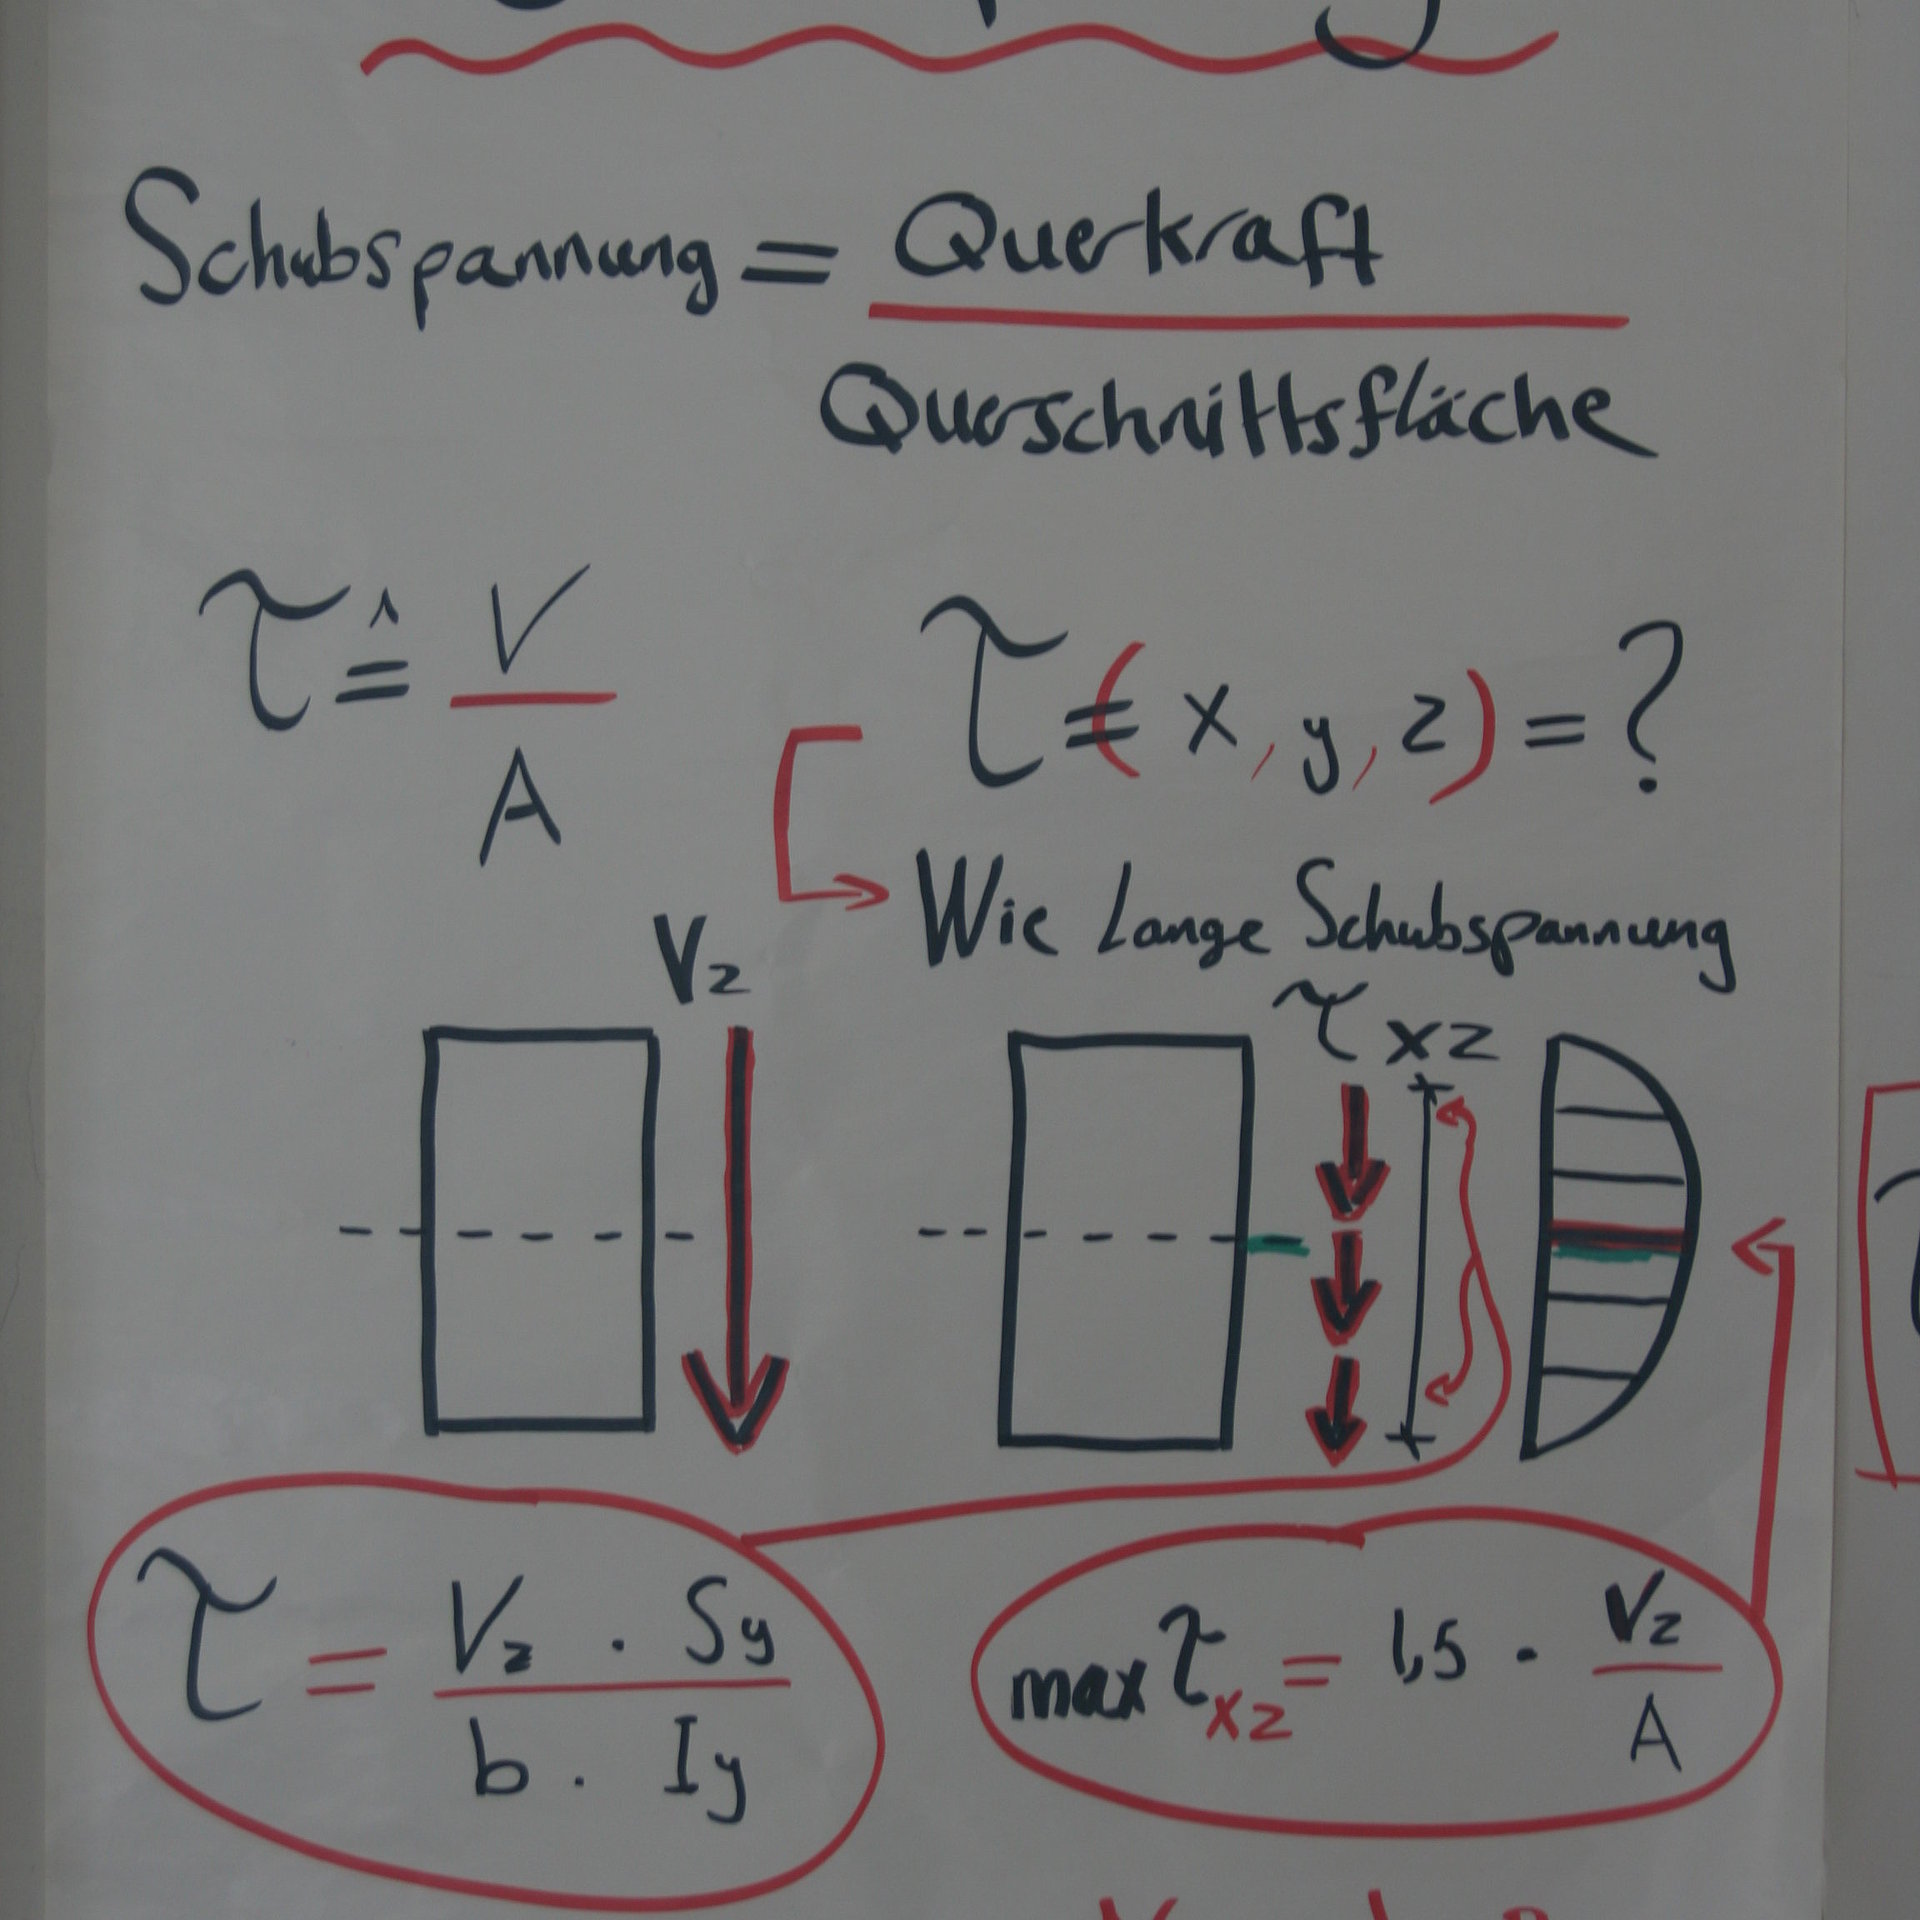 Schubspannung = Querkraft
Querschnittsfläche
τ ≙ V
A
τ = ( x , y , z ) = ?
Wie Lange Schubspannung
Vz
τ xz
τ = Vz · Sy
b · Iy
max τxz = 1,5 · Vz
A